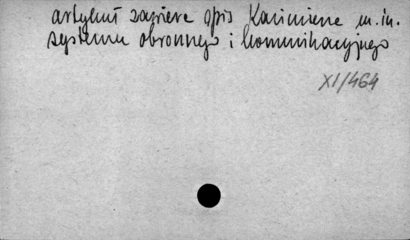 artykuł zawiera opis Kazimierza m.in.
systemu obronnego i komunikacyjnego
XI/464